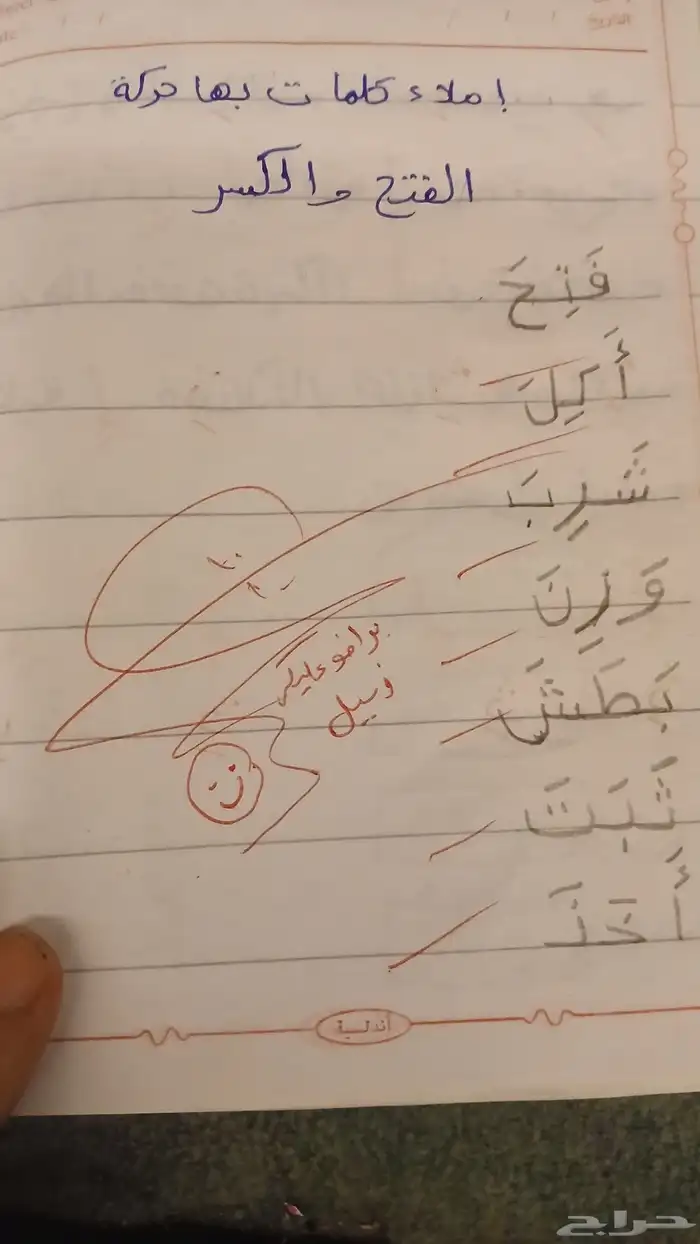 إملاء كلمات بها حركة
الفتح والكسر
فَتِحَ
أَكِلَ
شَرِبَ
وَزِنَ
بَطَشَ
ثَبَتَ
أَخَذَ
١٠
١٠
برافو عليكي
أندلسية
حراج